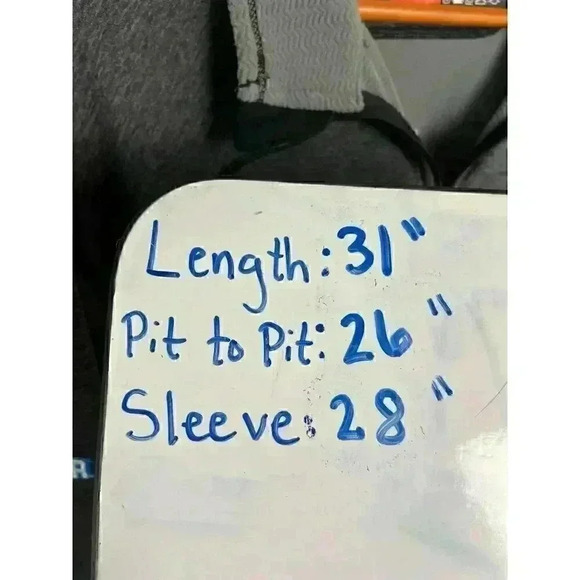 Length: 31"
Pit to Pit: 26"
Sleeve: 28"
R